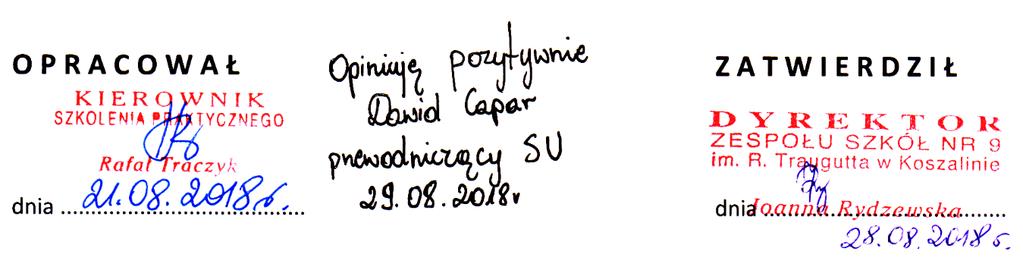 OPRACOWAŁ
KIEROWNIK
SZKOLENIA PRAKTYCZNEGO
Rafał Traczyk
dnia 21.08.2018r.
Opiniuję pozytywnie
Dawid Capar
przewodniczący SU
29.08.2018r
ZATWIERDZIŁ
DYREKTOR
ZESPOŁU SZKÓŁ NR 9
im. R. Traugutta w Koszalinie
dnia Joanna Rydzewska
28.08.2018 r.